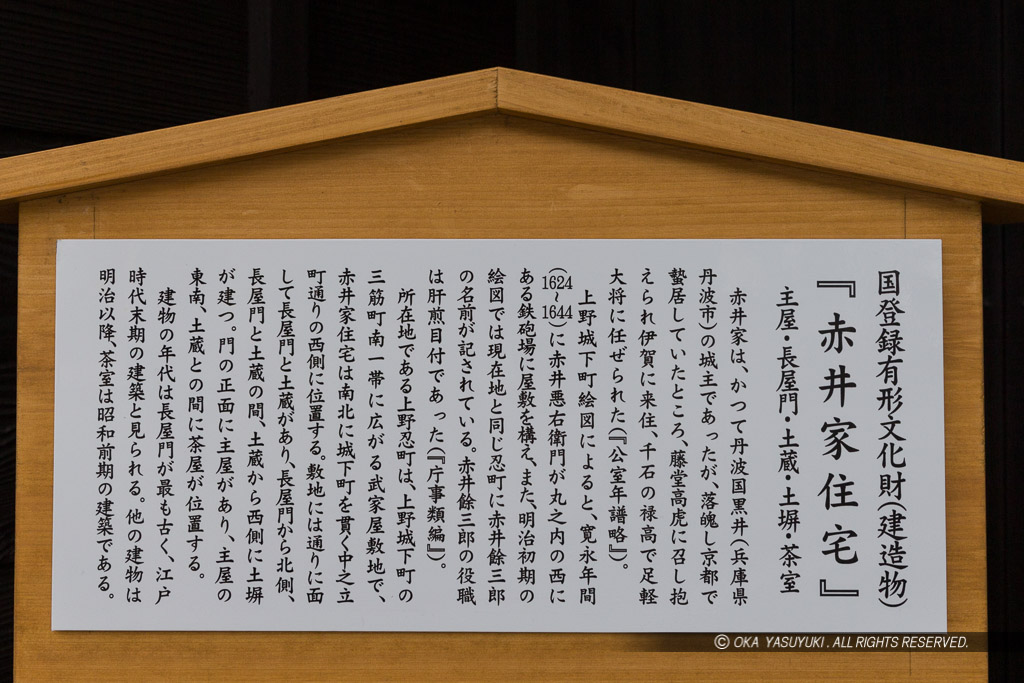 国登録有形文化財(建造物)
『赤井家住宅』
主屋・長屋門・土蔵・土塀・茶室
赤井家は、かつて丹波国黒井(兵庫県
丹波市)の城主であったが、落魄し京都で
蟄居していたところ、藤堂高虎に召し抱
えられ伊賀に来住、千石の禄高で足軽
大将に任ぜられた(『公室年譜略』)。
上野城下町絵図によると、寛永年間
(1624～1644)に赤井悪右衛門が丸之内の西に
ある鉄砲場に屋敷を構え、また、明治初期の
絵図では現在地と同じ忍町に赤井餘三郎
の名前が記されている。赤井餘三郎の役職
は肝煎目付であった(『庁事類編』)。
所在地である上野忍町は、上野城下町の
三筋町南一帯に広がる武家屋敷地で、
赤井家住宅は南北に城下町を貫く中之立
町通りの西側に位置する。敷地には通りに面
して長屋門と土蔵があり、長屋門から北側、
長屋門と土蔵の間、土蔵から西側に土塀
が建つ。門の正面に主屋があり、主屋の
東南、土蔵との間に茶屋が位置する。
建物の年代は長屋門が最も古く、江戸
時代末期の建築と見られる。他の建物は
明治以降、茶室は昭和前期の建築である。
© OKA YASUYUKI . ALL RIGHTS RESERVED.